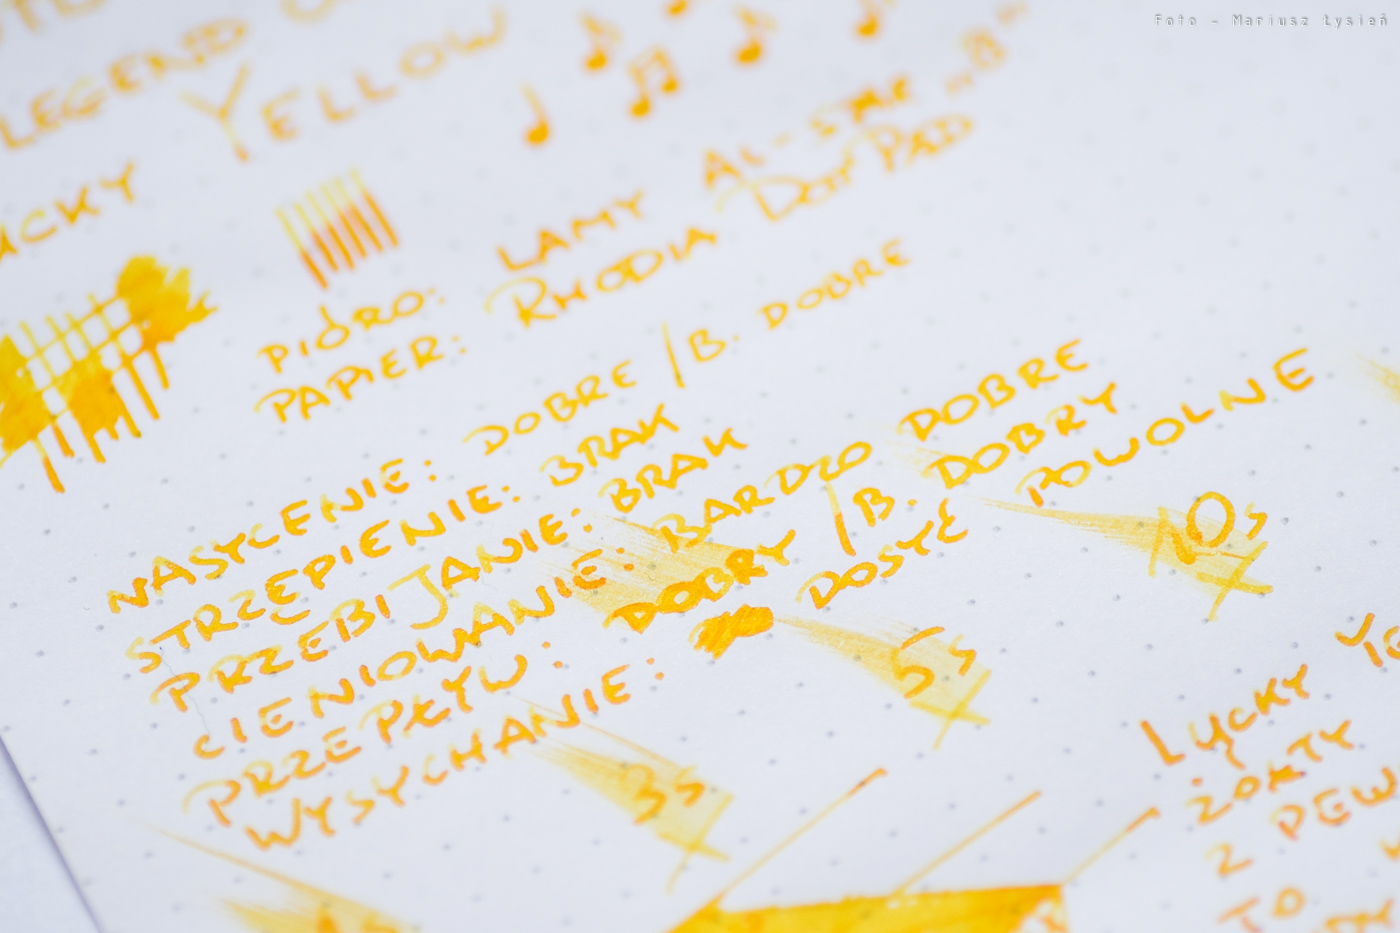 Foto - Mariusz Łysień
LEGEND
YELLOW
PIÓRO: LAMY AL-STAR
PAPIER: RHODIA DOT PAD
NASYCENIE: DOBRE / B. DOBRE
STRZĘPIENIE: BRAK
PRZEBIJANIE: BRAK
CIENIOWANIE: BARDZO DOBRE
PRZEPŁYW: DOBRY / B. DOBRY
WYSYCHANIE: DOSYĆ POWOLNE
3s
5s
10s
LUCKY
ŻÓŁTY
Z
TO